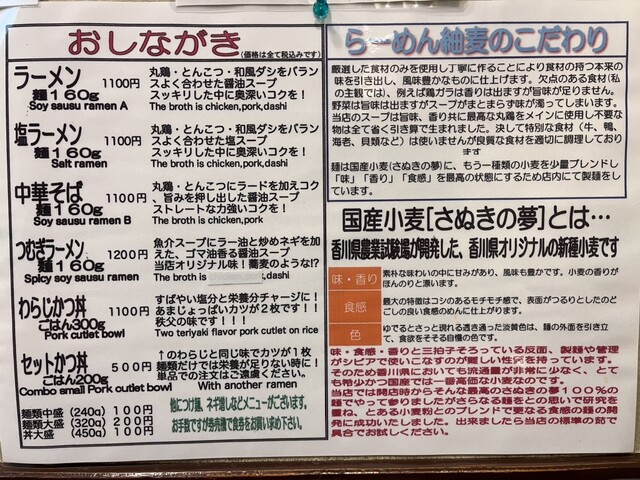 おしながき
(価格は全て税込みです)
ラーメン 1100円
麺160g
Soy sausu ramen A
丸鶏・とんこつ・和風ダシをバラン
スよく合わせた醤油スープ
スッキリした中に奥深いコクを！
The broth is chicken,pork,dashi
塩ラーメン 1100円
麺160g
Salt ramen
丸鶏・とんこつ・和風ダシをバラン
スよく合わせた塩スープ
スッキリした中に奥深いコクを！
The broth is chicken,pork,dashi
中華そば 1100円
麺160g
Soy sausu ramen B
丸鶏・とんこつにラードを加えコク
、旨みを押し出した醤油スープ
ストレートな力強いコクを！
The broth is chicken,pork
つむぎラーメン 1200円
麺160g
Spicy soy sausu ramen
魚介スープにラー油と炒めネギを加
えた、ゴマ油香る醤油スープ
当店オリジナル味！蕎麦のような!?
The broth is ,dashi
わらじかつ丼 1100円
ごはん300g
Pork cutlet bowl
すばやい塩分と栄養分チャージに！
あまじょっぱいカツが２枚です！！
秩父の味です！！！
Two teriyaki flavor pork cutlet on rice
セットかつ丼 500円
ごはん200g
Combo small Pork cutlet bowl
↑のわらじと同じ味でカツが１枚
麺類だけでは栄養が足りない時に！
単品での注文はご遠慮ください。
With another ramen
麺類中盛 (240g) 100円
麺類大盛 (320g) 200円
丼大盛 (450g) 100円
他につけ麺、ネギ増しなどメニューがございます。
お手数ですが券売機で食券をお買い求め下さい。
らーめん紬麦のこだわり
厳選した食材のみを使用し丁寧に作ることにより食材の持つ本来の
味を引き出し、風味豊かなものに仕上げます。欠点のある食材(私
の主観では)、例えば鶏ガラは香りは出ますが旨味が足りません。
野菜は旨味は出ますがスープがまとまらず味が濁ってしまいます。
当店のスープは旨味、香り共に最高な丸鶏をメインに使用し不要な
物は全て省く引き算で生まれました。決して特別な食材(牛、鴨、
海老、貝類など)は使いませんが良質な食材を適切に調理しており
ます
麺は国産小麦(さぬきの夢)に、もう一種類の小麦を少量ブレンドし
「味」「香り」「食感」を最高の状態にするため店内にて製麺をし
ています。
国産小麦[さぬきの夢]とは…
香川県農業試験場が開発した、香川県オリジナルの新種小麦です
味・香り
素朴な味わいの中に甘みがあり、風味も豊かです。小麦の香りが
ほんのりと漂います。
食感
最大の特徴はコシのあるモチモチ感で、表面がつるりとしたのど
ごしの良い食感のめんに仕上がります。
色
ゆでるとさっと現れる透き通った淡黄色は、麺の外面を引き立
て、食欲をそそる自慢の色です。
味・食感・香りと三拍子そろっている反面、製麺や管理
がシビアで使いこなすのが難しい性質を持っています。
そのため香川県においても流通量が非常に少なく、とて
も希少かつ国産では一番高価な小麦なのです。
当店では開店時からそんな最高のさぬきの夢１００％の
麺でやって参りましたがさらなる麺をとの思いで研究を
重ね、とある小麦粉とのブレンドで更なる食感の麺の開
発に成功いたしました。出来ましたら当店の標準の茹で
具合でお試しください。